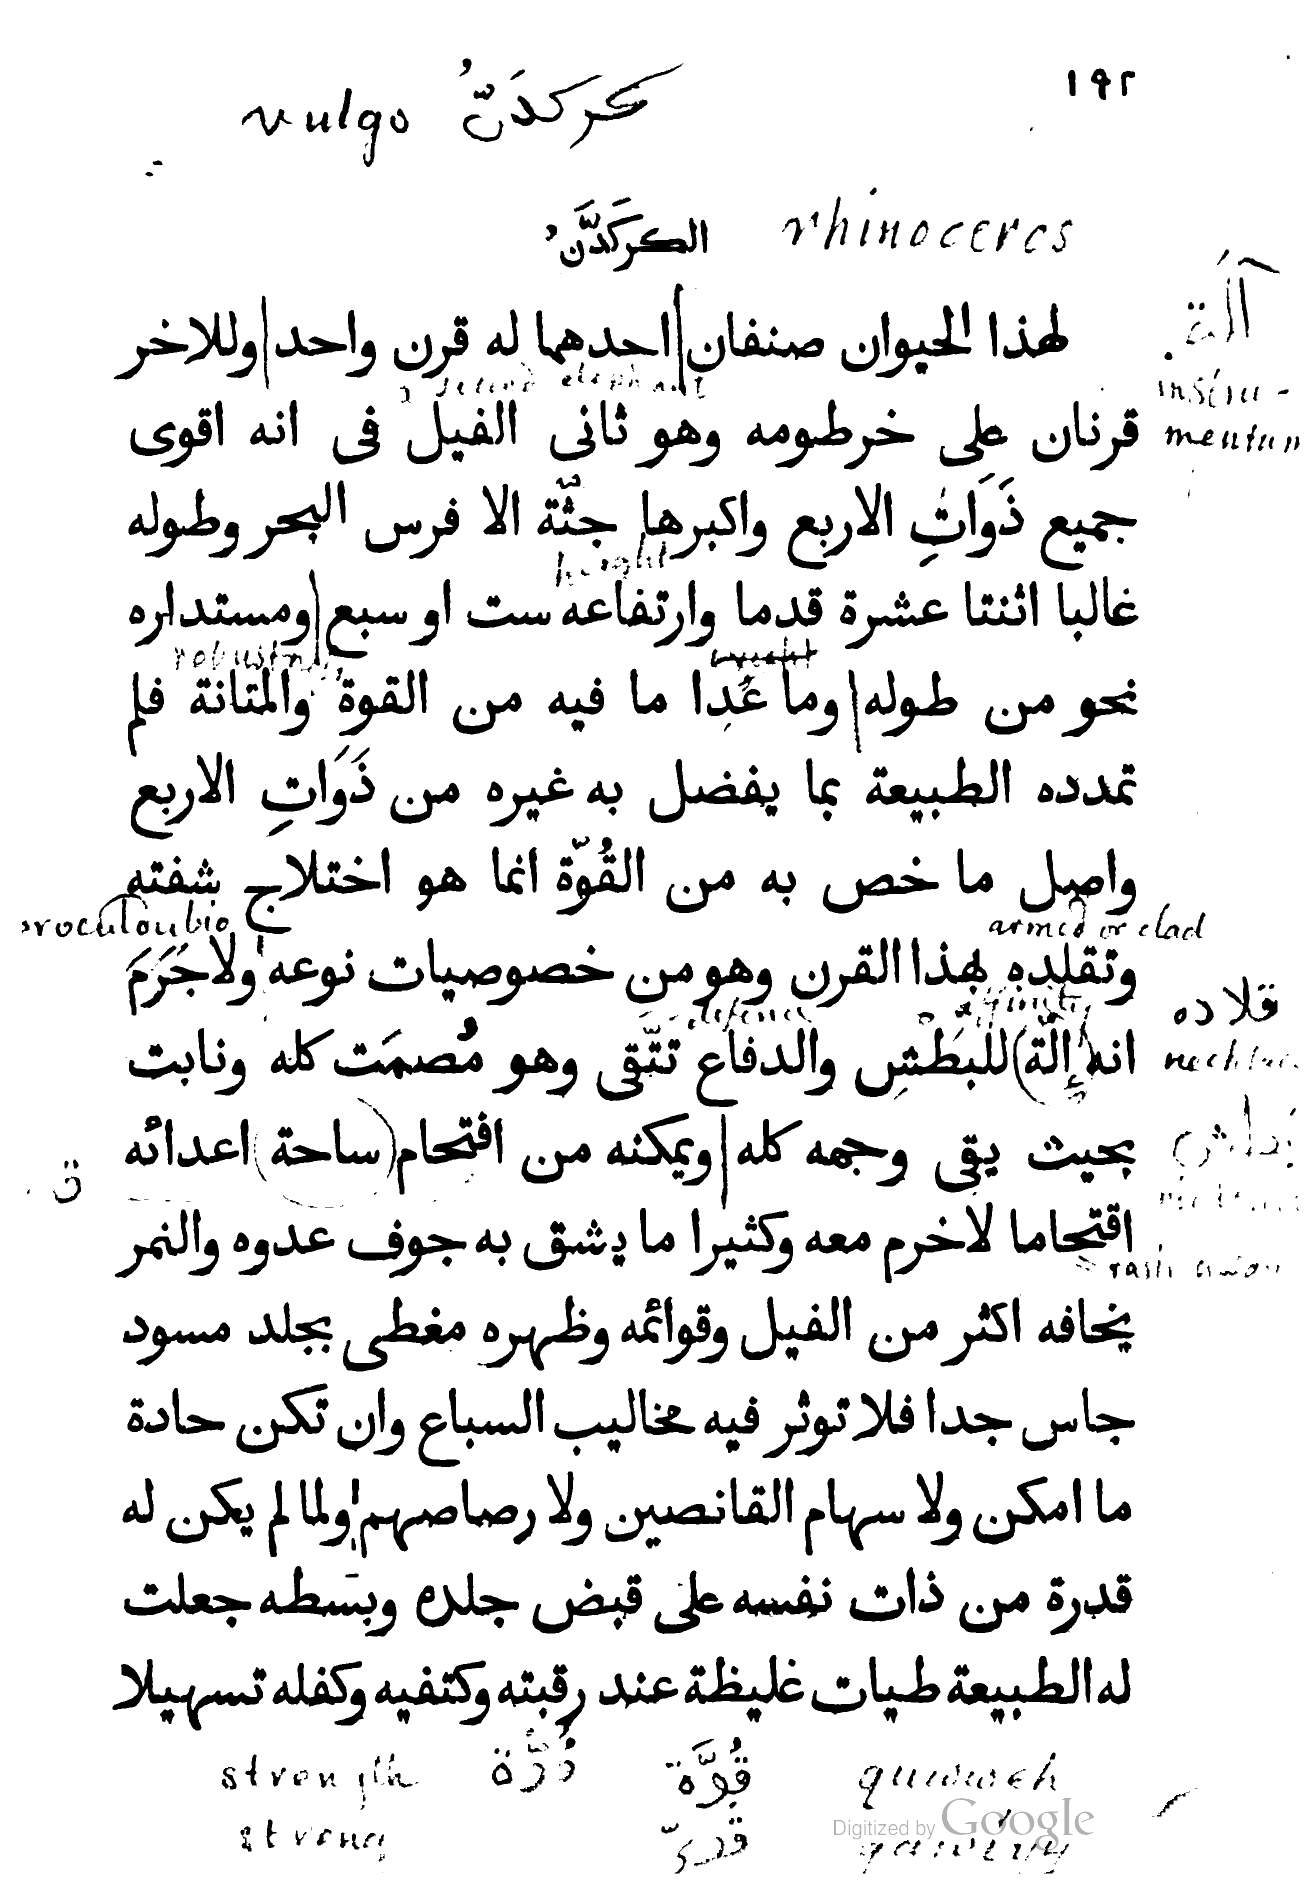 ١٩٢
vulgo كركدَنّ
الكَركَدَّن rhinoceros
آلة
لهذا الحيوان صنفان احدهما له قرن واحد وللاخر
a second elephant
instru-
قرنان على خرطومه وهو ثانى الفيل فى انه اقوى
mentum
جميع ذَوَاتِ الاربع واكبرها جثّة الا فرس البحر وطوله
height
غالبا اثنتا عشرة قدما وارتفاعه ست او سبع ومستداره
نحو من طوله وما عُدِا ما فيه من القوة والمتانة فلم
تمدده الطبيعة بما يفضل به غيره من ذَوَاتِ الاربع
واصل ما خص به من القُوّة انما هو اختلاج شفته
armed or clad
procul dubio
وتقلده بهذا القرن وهو من خصوصيات نوعه ولا جَرَمَ
قلاده
defence
انه إلَة للبَطْشِ والدفاع تتَّقى وهو مُصمَت كله ونابت
بحيث يقى وجهه كله ويمكنه من افتحام ساحة اعدائه
ق
اقتحاما لاخرم معه وكثيرا ما يشق به جوف عدوه والنمر
يخافه اكثر من الفيل وقوائمه وظهره مغطى بجلد مسود
جاس جدا فلا توثر فيه مخاليب السباع وان تكن حادة
ما امكن ولا سهام القانصين ولا رصاصهم ولما لم يكن له
قدرة من ذات نفسه على قبض جلده وبسَطه جعلت
له الطبيعة طيات غليظة عند رقبته وكتفيه وكفله تسهيلا
quwweh قُوَّة strength
strong
Digitized by Google